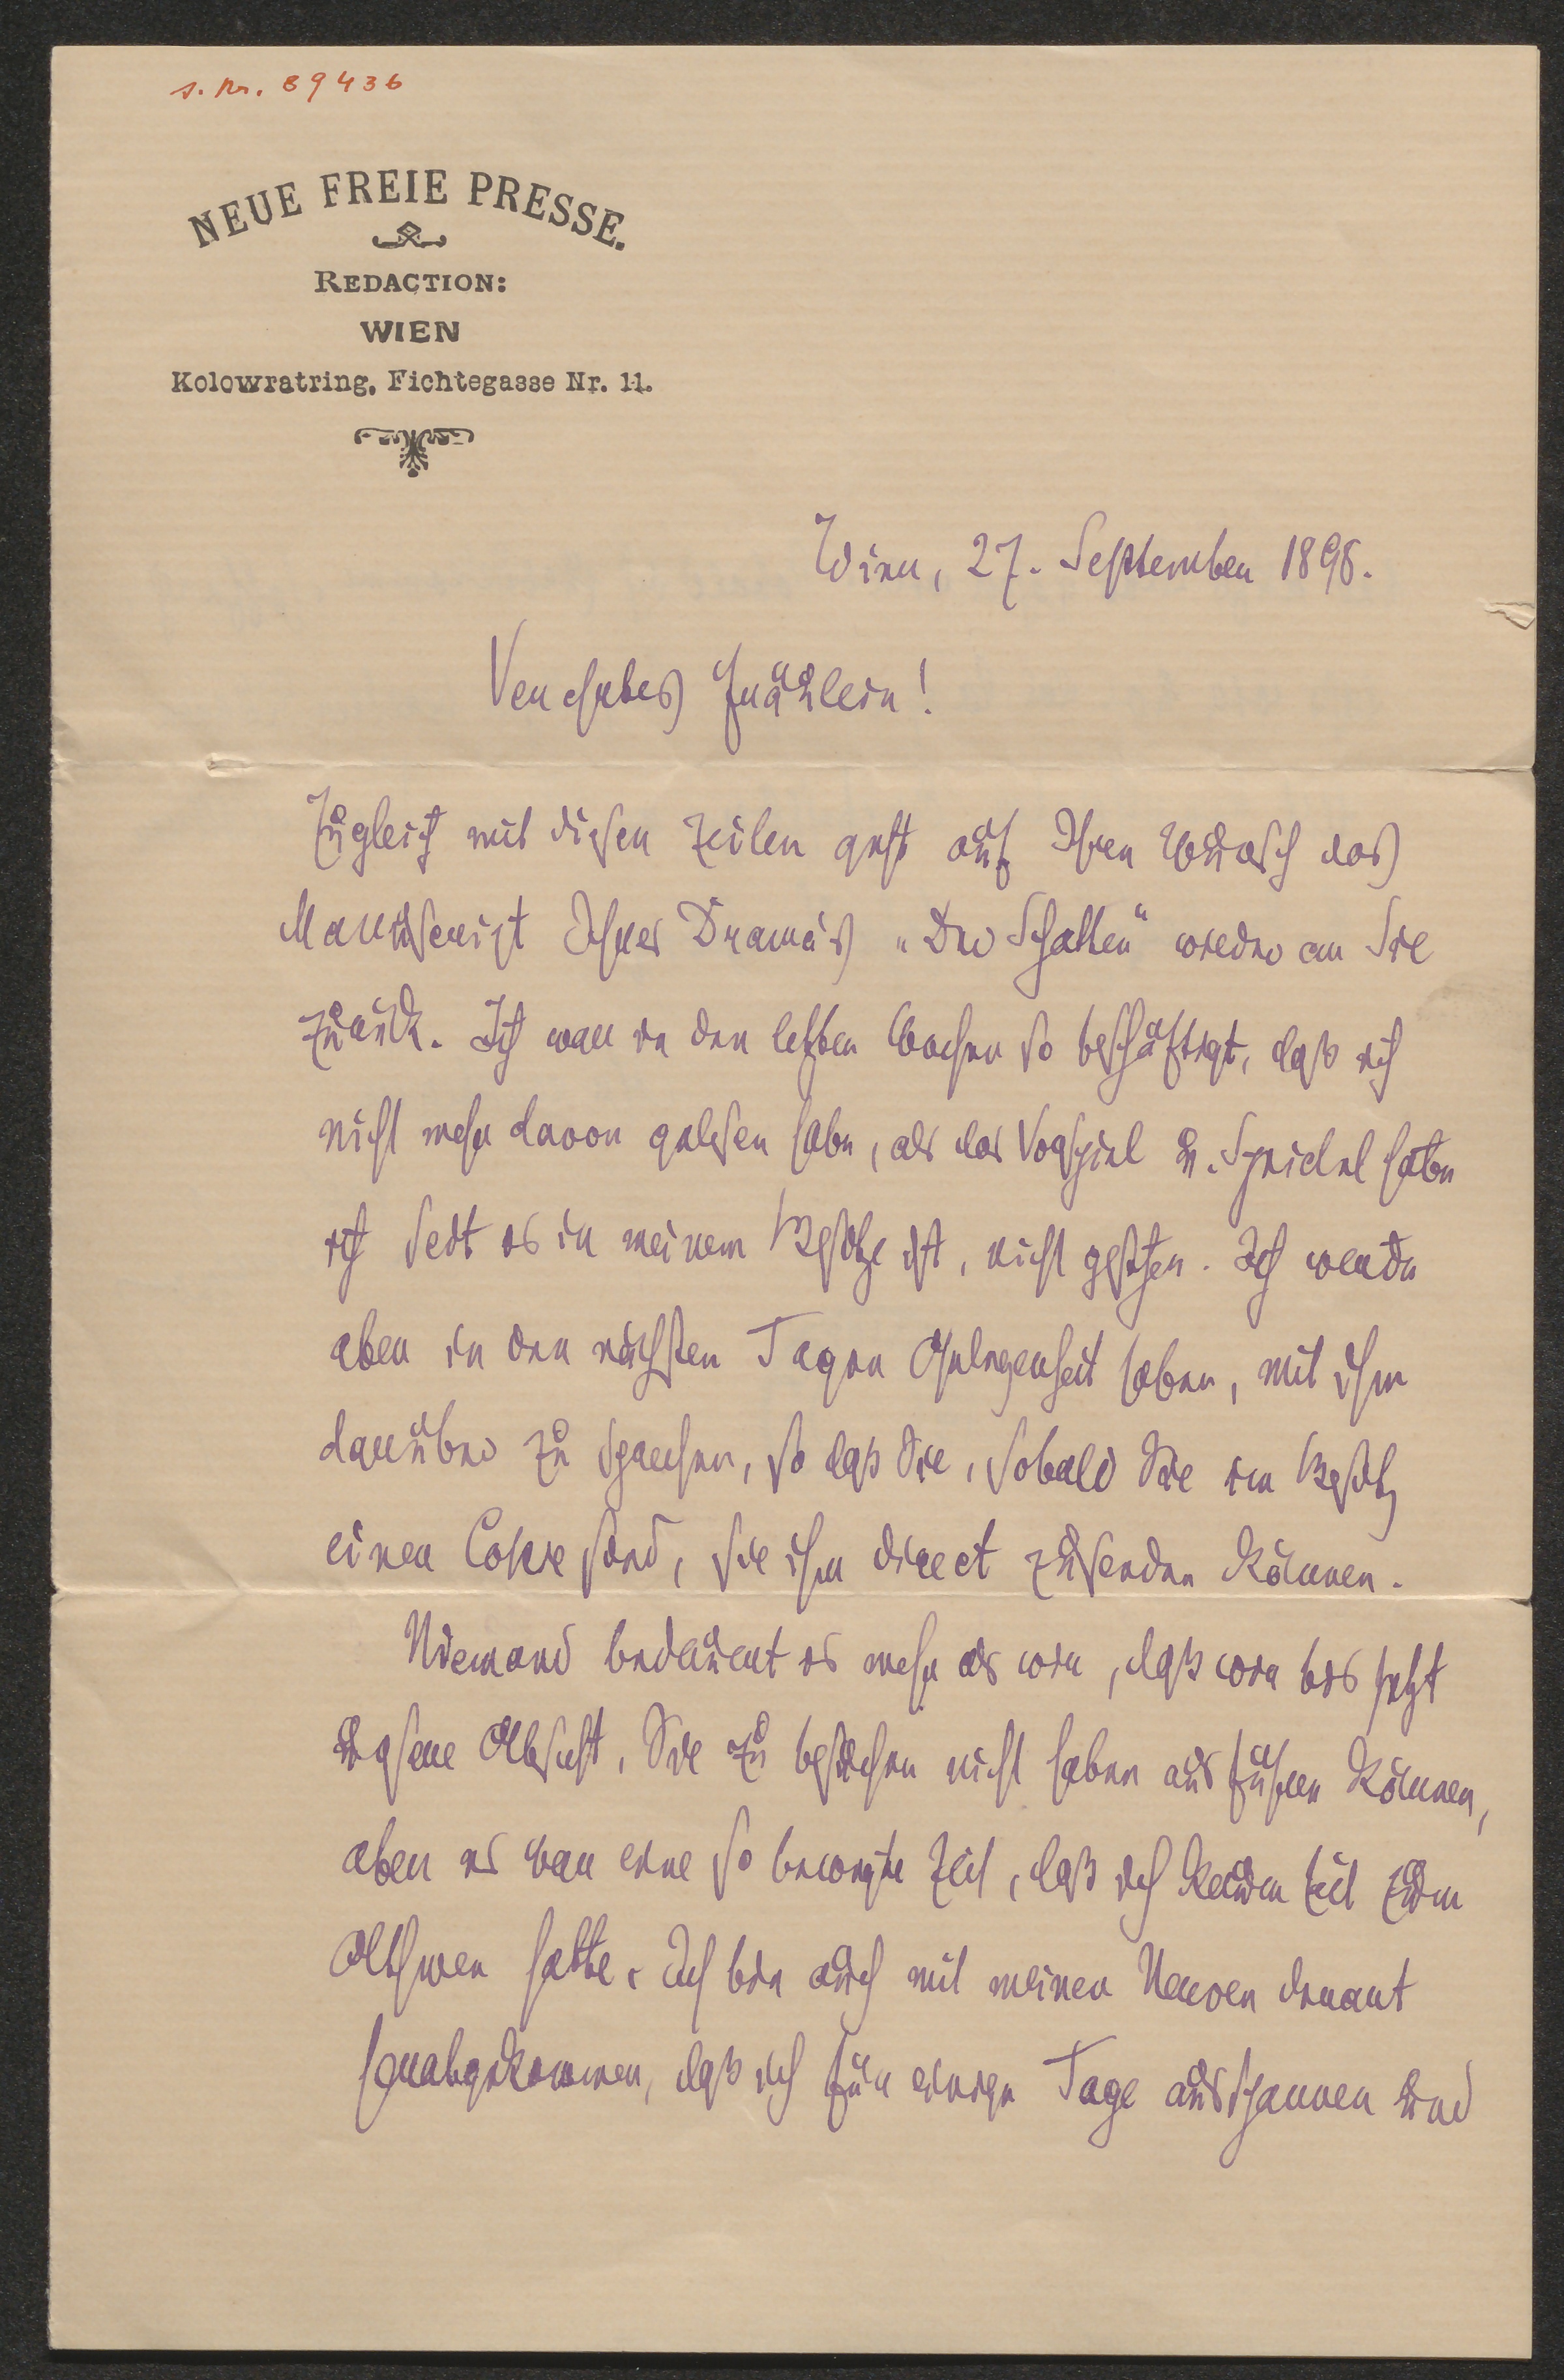 s. Nr. 89436
NEUE FREIE PRESSE.
REDACTION:
WIEN
Kolowratring, Fichtegasse Nr. 11.
Wien, 27. September 1898.
Verehrtes Fräulein!
Zugleich mit diesen Zeilen geht auf Ihren Wunsch das
Manuscript Ihres Drama's „Der Schatten" wieder an Sie
zurück. Ich war in den letzten Wochen so beschäftigt, daß ich
nicht mehr davon gelesen habe, als das Vorspiel u. Speidel habe
ich seit es in meinem Besitze ist, nicht gesehen. Ich werde
aber in den nächsten Tagen Gelegenheit haben, mit ihm
darüber zu sprechen, so daß Sie, sobald Sie im Besitz
einer Copie sind, sie ihm direct zusenden können.
Niemand bedauert es mehr als wir, daß wir bis jetzt
unsere Absicht, Sie zu besuchen nicht haben ausführen können,
aber es war eine so bewegte Zeit, daß ich kaum Zeit zum
Athmen hatte. Ich bin auch mit meinen Nerven derart
herabgekommen, daß ich für einige Tage ausspannen und